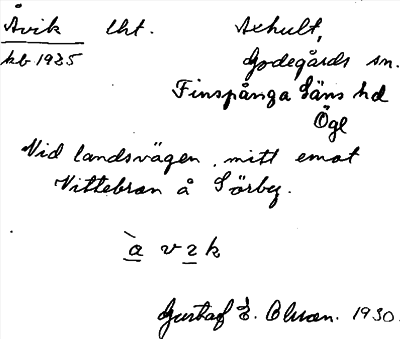 Åvik lht. Axhult,
kb 1925 Godegårds sn.
Finspånga Läns hd
Ögl
Vid landsvägen, mitt emot
Vittebron å Sörby.
Gustaf E. Olsson. 1930.